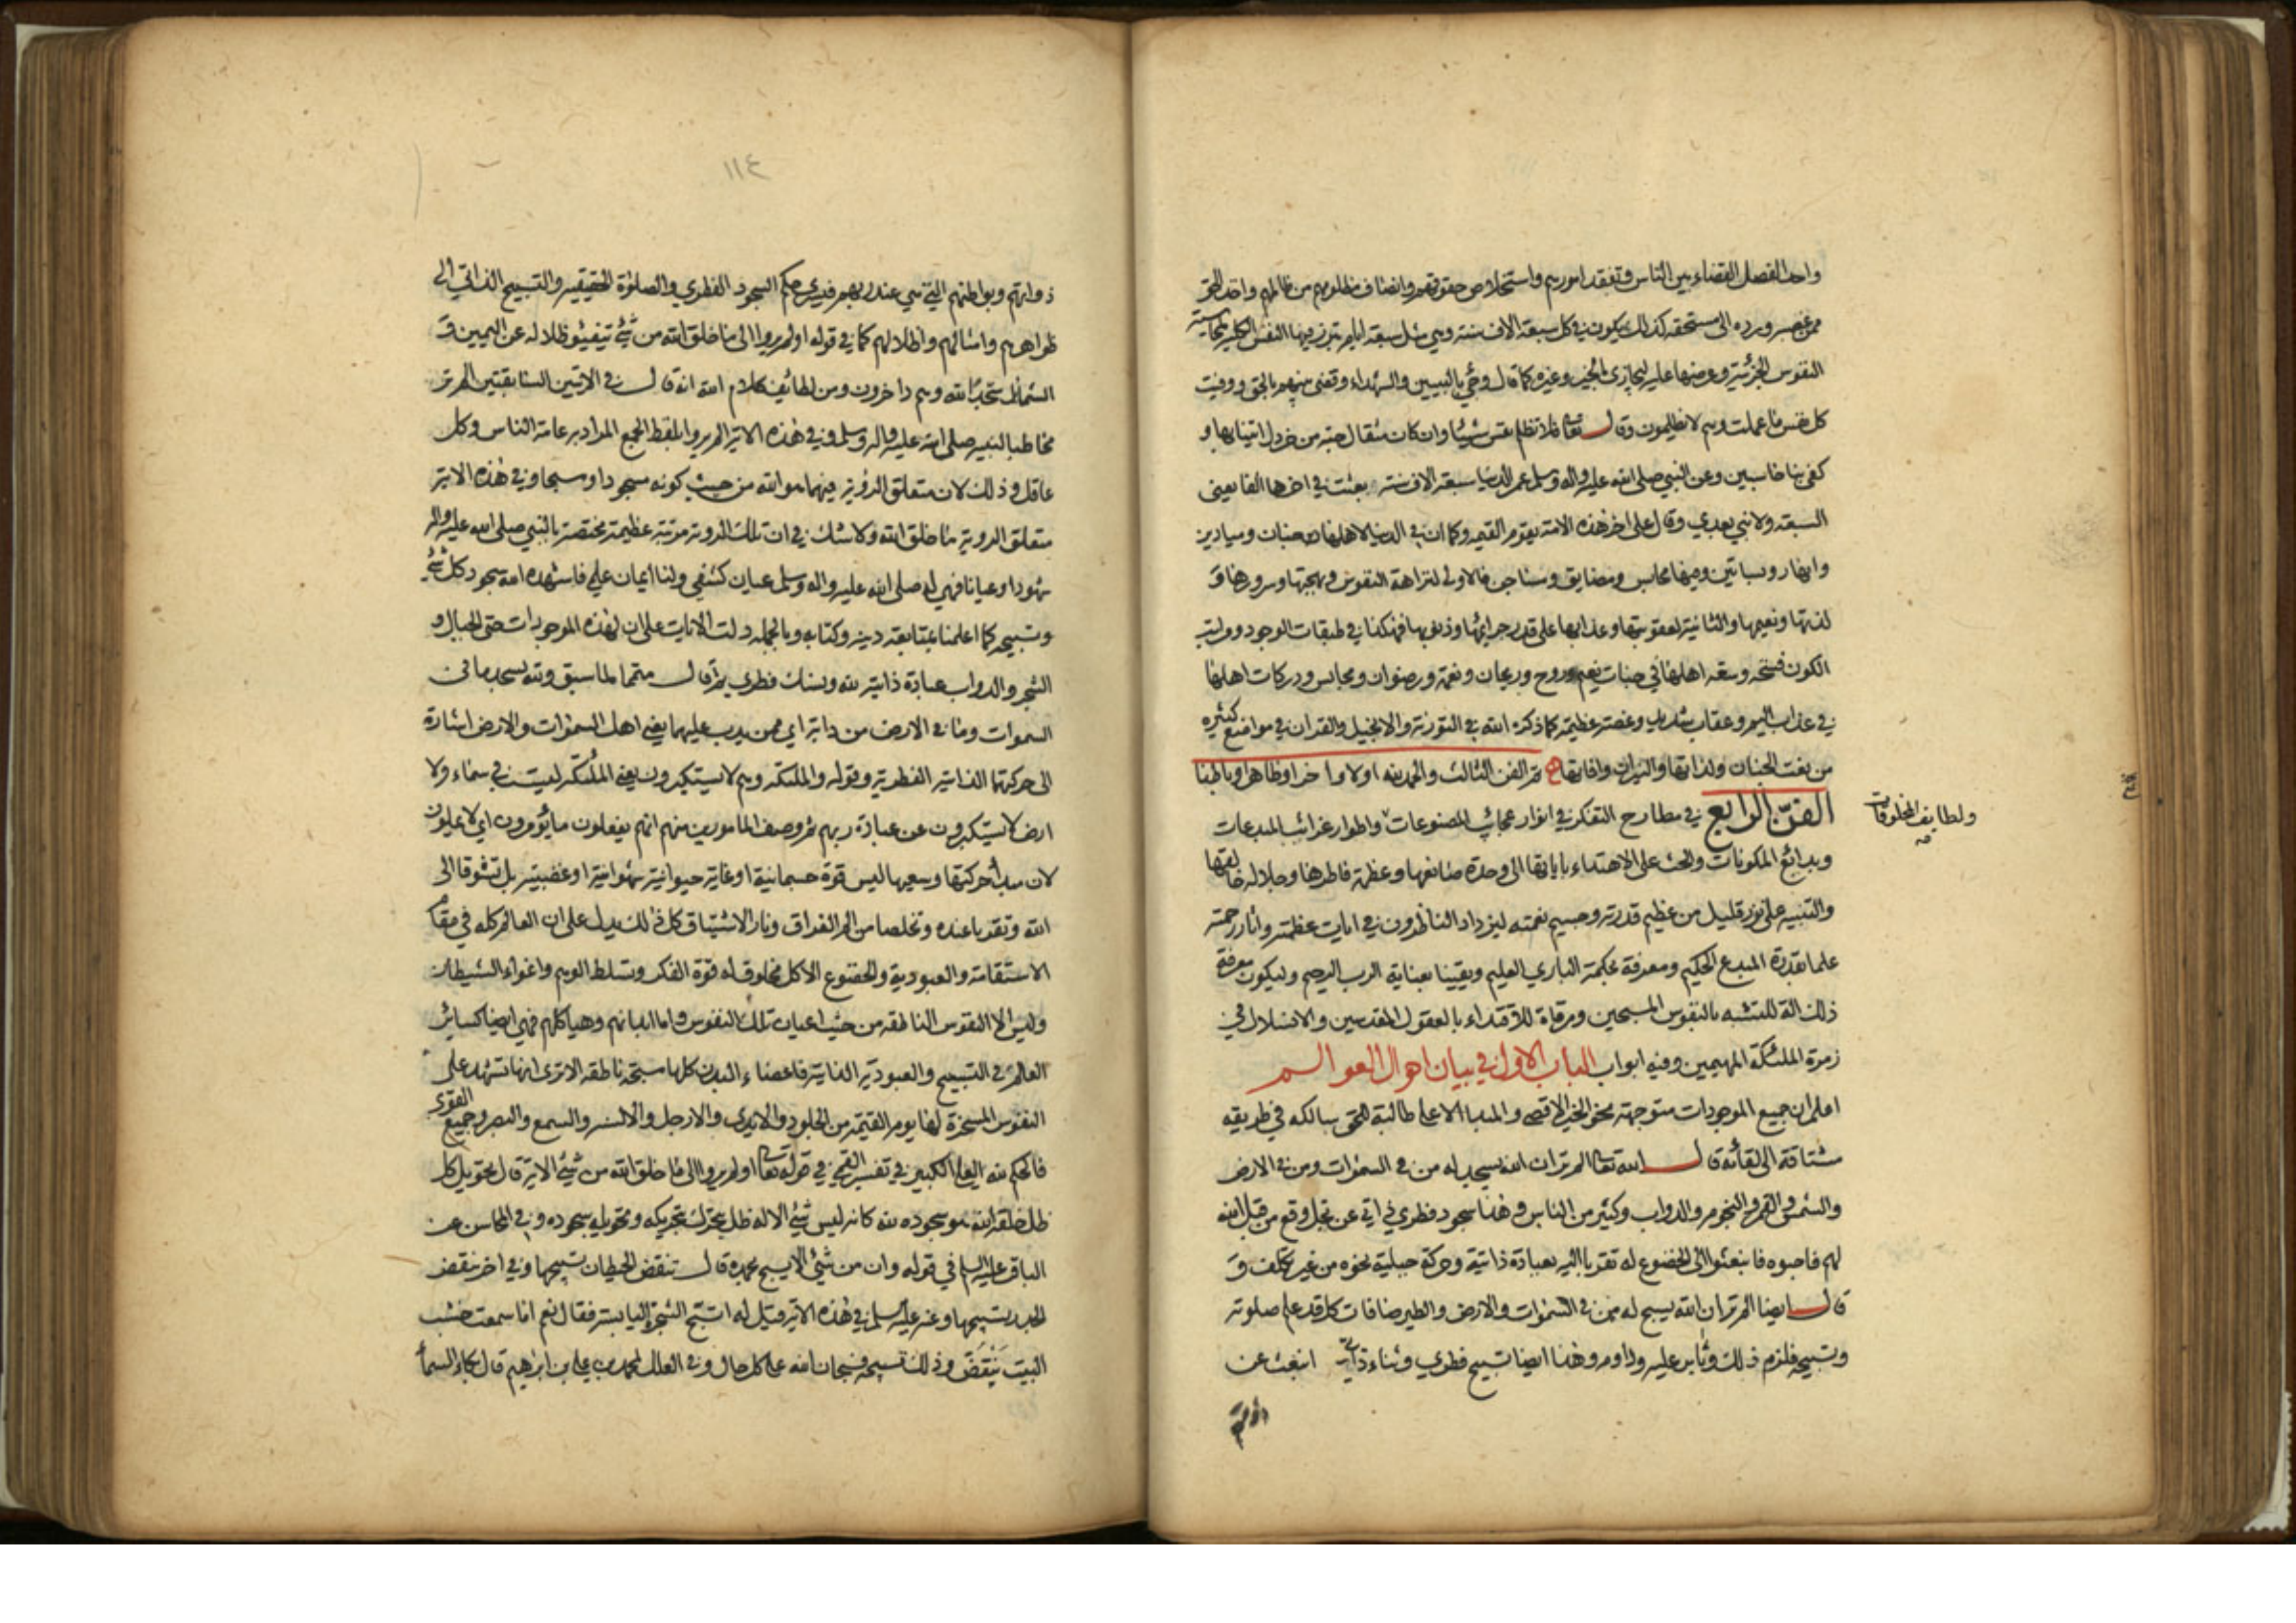 واحد الفصل القضاء بين الناس وتفقد امورهم واستخلاص حقوقهم وانصاف مظلومهم من ظالمهم واخذ الحق
ممن غصبه ورده الى مستحقه كذلك يكون في كل سبعة الاف سنة وهي مثل سبعة ايام تبرز فيها النفس الكلية لمحاسبة
النفوس الجزئية وعرضها عليه ليجازى بالخير وغيره كما قال وجئ بالنبيين والشهداء وقضى بينهم بالحق ووفيت
كل نفس ما عملت وهم لا يظلمون وقال تعالى فلا تظلم نفس شيئا وان كان مثقال حبة من خردل اتينا بها و
كفى بنا حاسبين وعن النبي صلى الله عليه واله وسلم عمر الدنيا سبعة الاف سنة بعثت في اخرها الفا يعني
السبعة ولا نبي بعدي وقال على اخر هذه الامة يقوم القيمة وكما ان في الدنيا لاهلها جنات وميادين
وانهار وبساتين وفيها محابس ومضايق وسناجن فالاولى لنزاهة النفوس وبهجتها وسرورها و
لذتها ونعيمها والثانية لعقوبتها وعذابها على قدر جرائمها وذنوبها فهكذا في طبقات الوجود ومراتب
الكون فسحة وسعة اهلها في جنات نعيم وروح وريحان ونعمة ورضوان ومحابس ودركات اهلها
في عذاب اليم وعقاب شديد وغصة عظيمة كما ذكره الله في التورية والانجيل والقران في مواضع كثيره
من نعت الجنان ولذاتها والنيران وافاتها تم الفن الثالث والحمد لله اولا واخرا وظاهرا وباطنا
الفن الرابع في مطارح التفكر في انوار عجائب المصنوعات واطوار غرائب المبدعات
ولطايف المخلوقات
وبدائع المكونات والحث على الاهتداء باياتها الى وحدة صانعها وعظمة فاطرها وجلالة خالقها
والتنبيه على نزر قليل من عظيم قدرته وجسيم نعمته ليزداد الناظرون في ايات عظمته واثار رحمته
علما بقدرة المبدع الحكيم ومعرفة بحكمة الباري العليم ويقينا بعناية الرب الرحيم وليكون معرفة
ذلك الة للتشبه بالنفوس المسبحين ومرقاة للاقتداء بالعقول المقدسين والانسلال في
زمرة الملئكة المهيمين وفيه ابواب الباب الاول في بيان احوال العوالم
اعلم ان جميع الموجودات متوجهة نحو الخير الاقصى والمبدا الاعلى طالبة للحق سالكه في طريقه
مشتاقة الى لقائه قال الله تعالى الم تر ان الله يسجد له من في السموات ومن في الارض
والشمس والقمر والنجوم والدواب وكثير من الناس وهذا سجود فطري ذاتي عن تجل وقع من قبل الله
لهم فاحبوه فانبعثوا الى الخضوع له تقربا اليه بعبادة ذاتية وحركة جبلية نحوه من غير تكلف و
قال ايضا الم تر ان الله يسبح له من في السموات والارض والطير صافات كل قد علم صلوته
وتسبيحه فلزم ذلك وثابر عليه وداوم وهذا ايضا تسبيح فطري وثناء ذاتي انبعث عن
ذواتهم
١١٤
ذواتهم وبواطنهم التي هي عند ربهم فيسري حكم السجود الفطري والصلوة الحقيقية والتسبيح الذاتي الى
ظواهرهم وامثالهم واظلالهم كما في قوله اولم يروا الى ما خلق الله من شئ يتفيئو ظلاله عن اليمين و
الشمائل سجدا لله وهم داخرون ومن لطائف كلام الله انه قال في الايتين السابقتين الم تر
مخاطبا لنبيه صلى الله عليه واله وسلم وفي هذه الاية الم يروا بلفظ الجمع المراد به عامة الناس وكل
عاقل وذلك لان متعلق الرؤية فيهما هو الله من حيث كونه مسجودا ومسبحا وفي هذه الاية
متعلق الروية ما خلق الله ولا شك في ان تلك الروية مرتبة عظيمة مختصة بالنبي صلى الله عليه واله
شهودا وعيانا فهي له صلى الله عليه واله وسلم عيان كشفي ولنا ايمان علمي فاشهده الله سجود كل شئ
وتسبيحه كما اعلمنا بمتابعة دينه وكتابه وبالجملة دلت الايات على ان لهذه الموجودات حتى الجبال و
الشجر والدواب عبادة ذاتية لله ونسك فطري ثم قال متمما لما سبق ولله يسجد ما في
السموات وما في الارض من دابة اي ممن يدب عليهما يعني اهل السموات والارض اشارة
الى حركتها الذاتية الفطرية وقوله والملئكه وهم لا يستكبرون يعني الملئكة ليست في سماء ولا
ارض لا يستكبرون عن عبادة ربهم ثم وصف المامورين منهم انهم يفعلون ما يؤمرون اي لا يملون
لان مبدأ حركتها وسعيها ليس قوة جسمانية او غاية حيوانية شهوانية او غضبية بل تشوقا الى
الله وتقربا عنده وتخلصا من الم الفراق ونار الاشتياق كل ذلك يدل على ان العالم كله في مقام
الاستقامة والعبودية والخضوع الا كل مخلوق له قوة الفكر وتسلط الوهم واغواء الشيطان
وليس الا النفوس الناطقه من حيث اعيان تلك النفوس واما ابدانهم وهياكلهم فهي ايضا كسائر
العالم في التسبيح والعبودية الذاتية فاعضاء البدن كلها مسبحة ناطقه الا ترى انها تشهد على
النفوس المسخرة لها يوم القيمة من الجلود والايدي والارجل والالسنة والسمع والبصر وجميع القوى
فالحكم لله العلي الكبير في تفسير القمي في قوله تعالى اولم يروا الى ما خلق الله من شئ الاية قال تحويل كل
ظل خلقه الله هو سجوده لله كانه ليس شئ الا له ظل يتحرك بتحريكه وتحويله سجوده وفي المحاسن عن
الباقر عليه السلام في قوله وان من شئ الا يسبح بحمده قال تنقض الحيطان تسبيحها وفي اخر تنقض
الجدر تسبيحها وعنه عليه السلام في هذه الاية قيل له اتسبح الشجرة اليابسة فقال نعم اما سمعت خشب
البيت ينقض وذلك تسبيحه فسبحان الله على كل حال وفي العلل لمحمد بن علي بن ابراهيم قال بكاء السماء